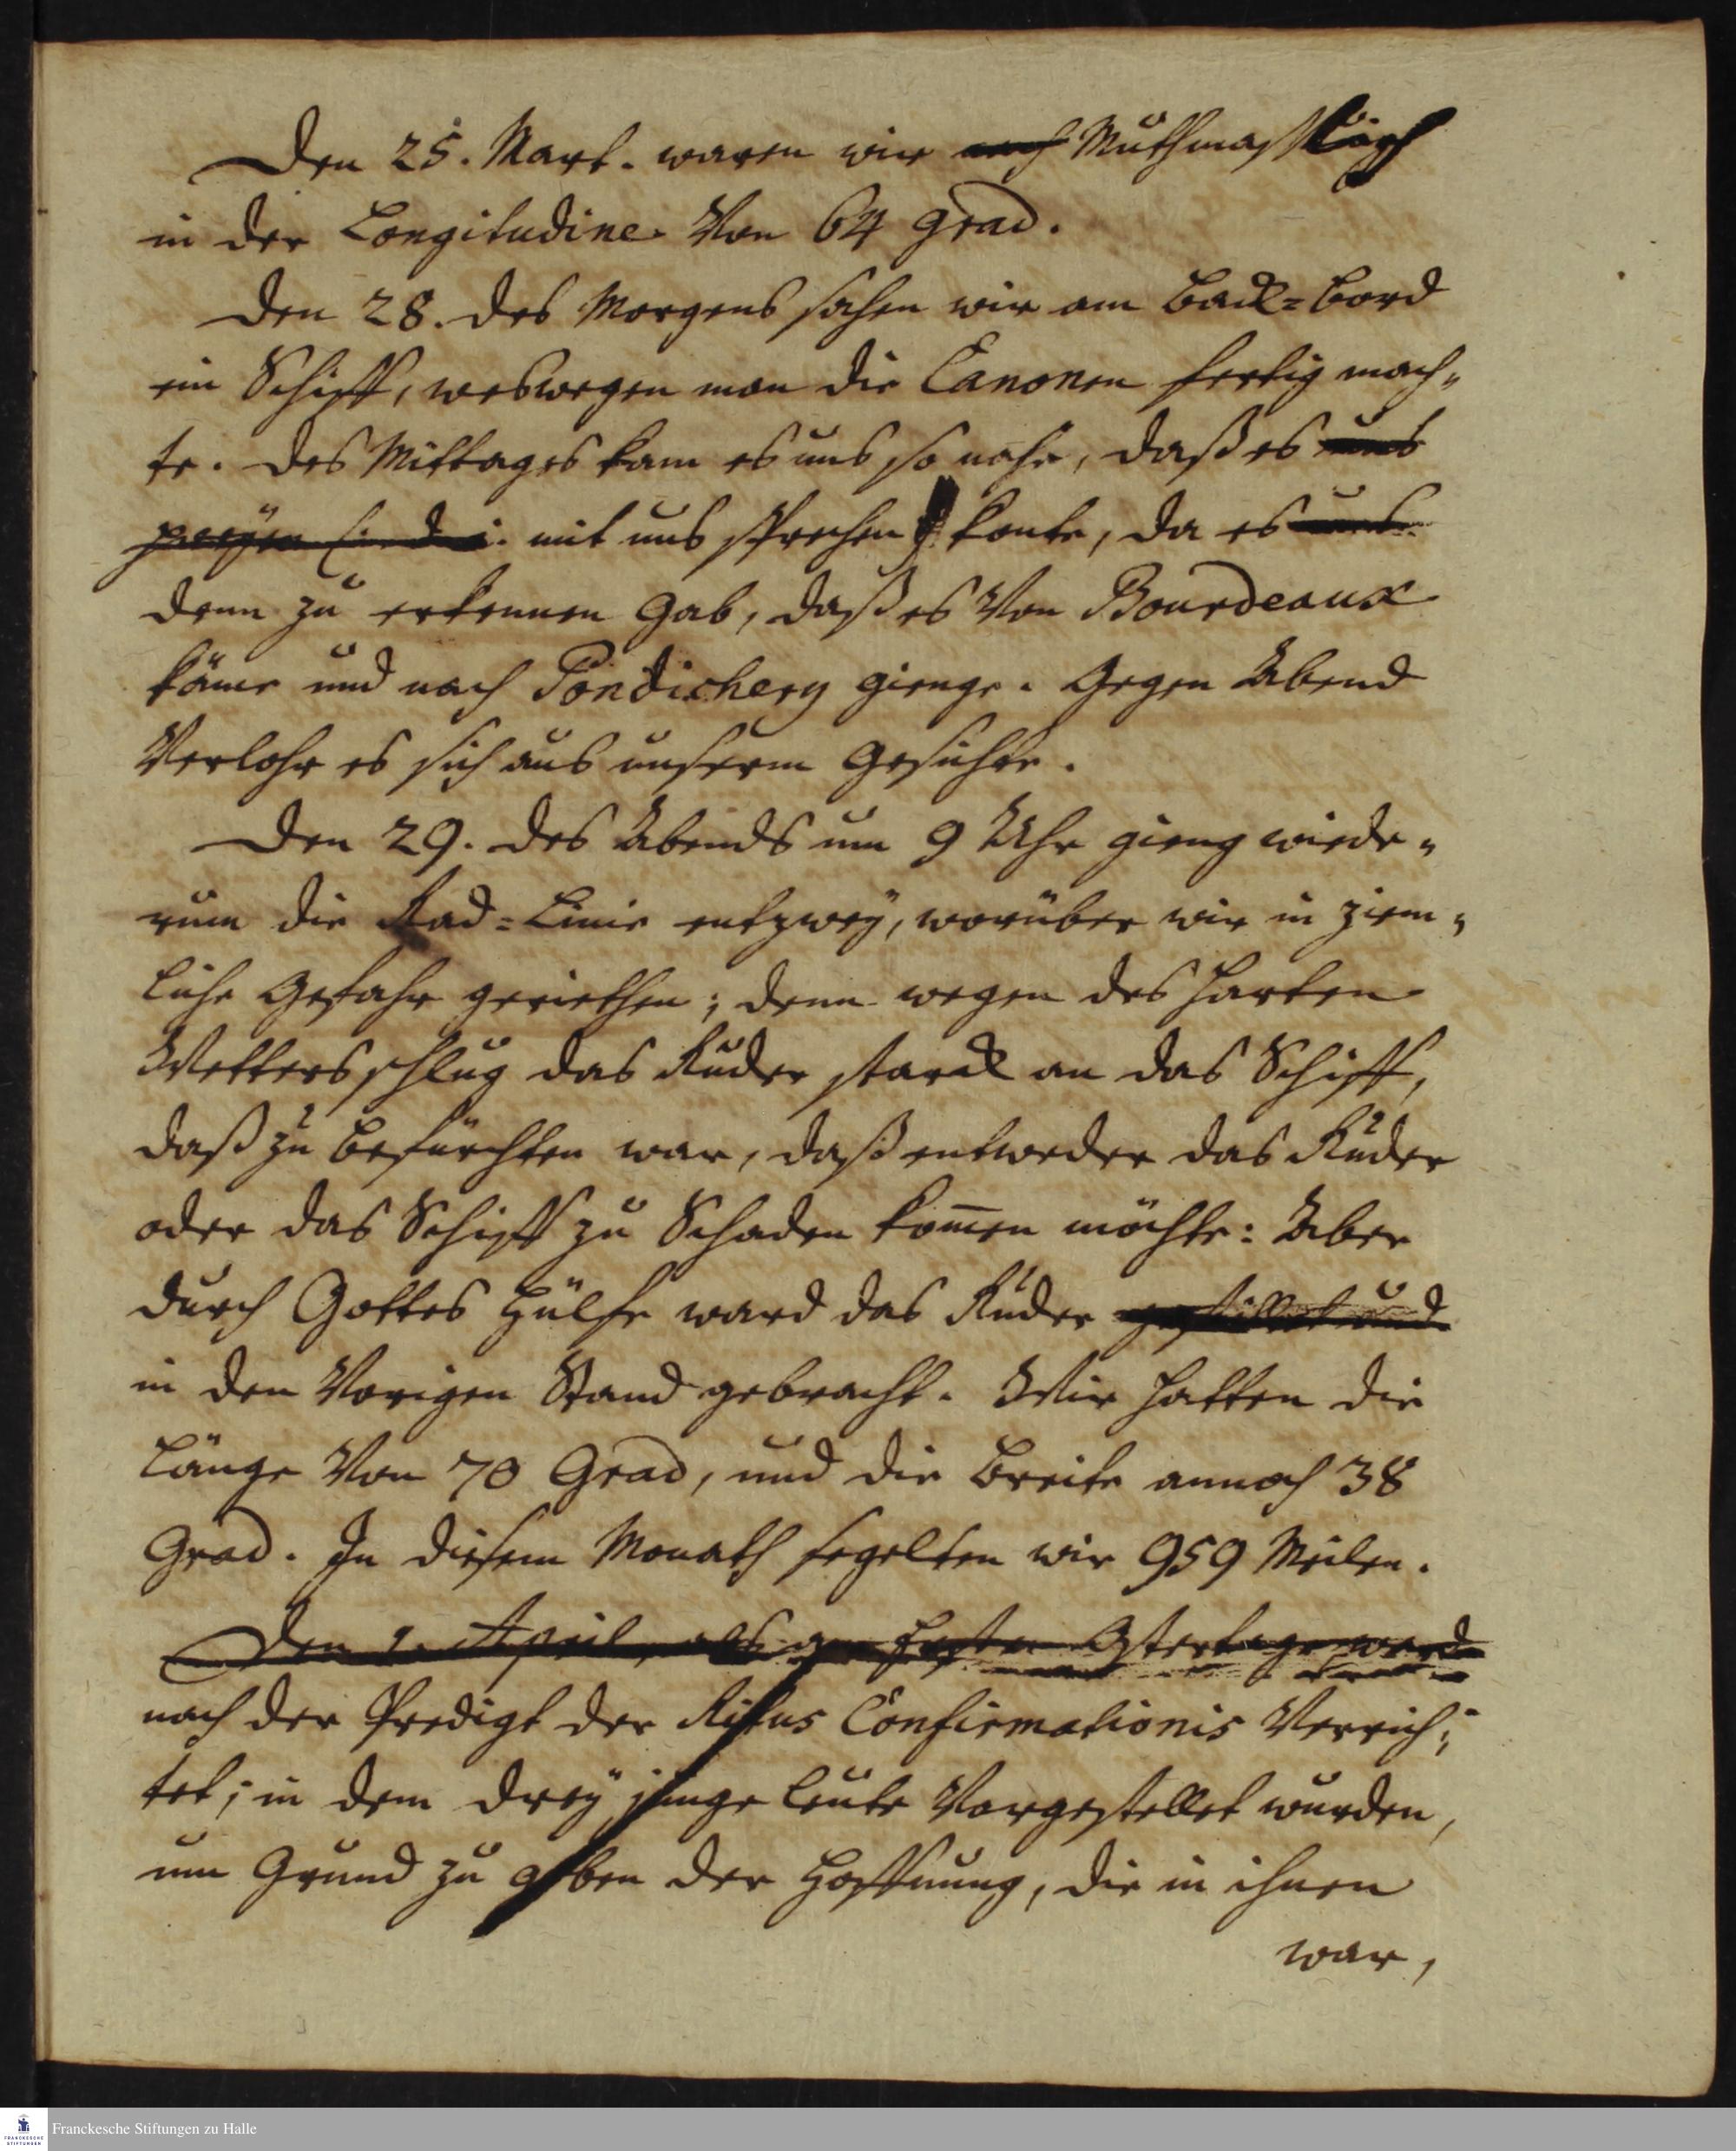 Den 25. Mart. waren wir nach Muthmaßlich
in der Longitudine von 64 grad.
Den 28. des Morgens sahen wir am Back=bord
ein Schiff, weswegen man die Canonen fertig mach„
te. Des Mittages kam es uns so nahe, daß es uns
preyen (: d. i. mit uns sprechen konte, da es uns
denn zu erkennen gab, daß es von Bourdeaux
käme und nach Pondichery gienge. Gegen Abend
verlohr es sich aus unserm Gesichte.
Den 29. des Abends um 9 Uhr gieng wiede„
rum die Rad=Linie entzwey, worüber wir in ziem„
liche Gefahr geriethen; denn wegen des harten
Wetters schlug das Ruder starck an das Schiff,
daß zu befürchten war, daß entweder das Ruder
oder das Schiff zu Schaden kom̄en möchte: Aber
durch Gottes Hülfe ward das Ruder gestillet und
in den vorigen Stand gebracht. Wir hatten die
Länge von 70 Grad, und die Breite annoch 38
Grad. In diesem Monath segelten wir 959 Meilen.
Den 1. April, als am Ersten Ostertage ward
nach der Predigt der Ritus Confirmationis verrich„
tet; in dem drey junge Leute vorgestellet wurden,
um Grund zu geben der Hoffnung, die in ihnen
war,
Franckesche Stiftungen zu Halle
FRANCKESCHE
STIFTUNGEN